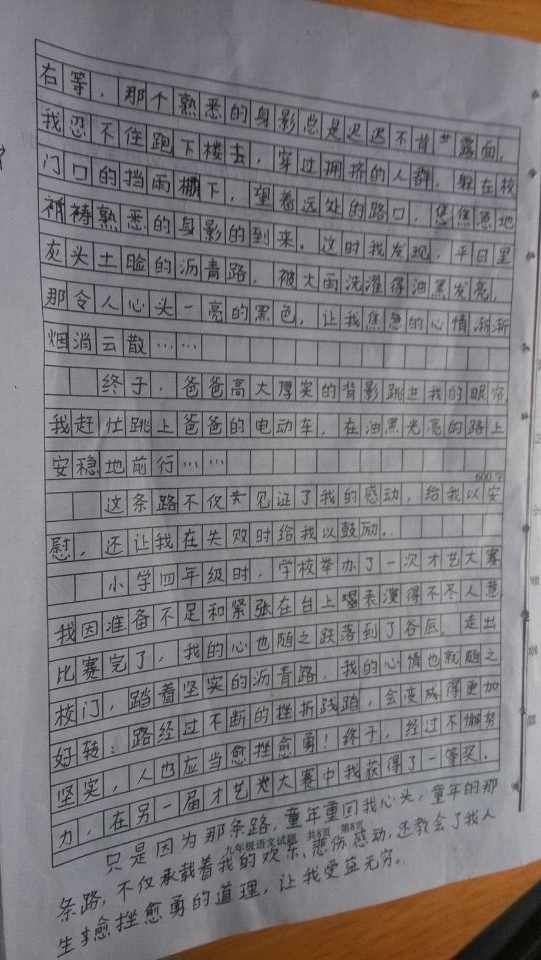 右等，那个熟悉的身影总是迟迟不肯露面，
我忍不住跑下楼去，穿过拥挤的人群，躲在校
门口的挡雨棚下，望着远处的路口，焦急地
祈祷熟悉的身影的到来。这时我发现，平日里
灰头土脸的沥青路，被大雨洗濯得油黑发亮，
那令人心头一亮的黑色，让我焦急的心情渐渐
烟消云散……
终于，爸爸高大厚实的背影跳进我的眼帘，
我赶忙跳上爸爸的电动车，在油黑光亮的路上
安稳地前行……
600字
这条路不仅见证了我的感动，给我以安
慰，还让我在失败时给我以鼓励。
小学四年级时，学校举办了一次才艺大赛
我因准备不足和紧张在台上表演得不尽人意，
比赛完了，我的心也随之跌落到了谷底。走出
校门，踏着坚实的沥青路，我的心情也就随之
好转：路经过不断的挫折践踏，会变成得更加
坚实，人也应当愈挫愈勇！终于，经过不懈努
力，在另一届才艺大赛中我获得了一等奖。
只是因为那条路，童年重回我心头，童年的那
九年级语文试题 共8页 第8页
条路，不仅承载着我的欢乐、悲伤感动，还教会了我人
生愈挫愈勇的道理，让我受益无穷。